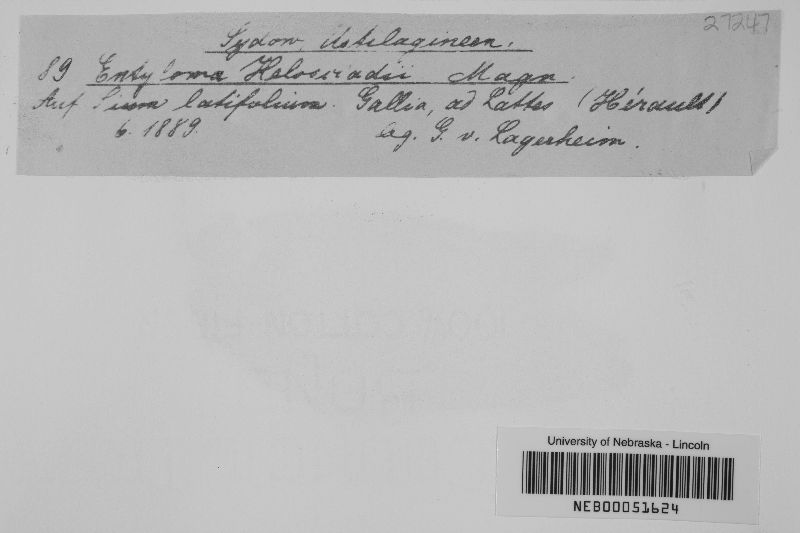 27247
Sydow, Ustilagineen.
89 Entyloma Helosciadii Magn.
Auf Sium latifolium. Gallia, ad Lattes (Hérault)
6. 1889. leg. G. v. Lagerheim.
University of Nebraska - Lincoln
NEB00051624